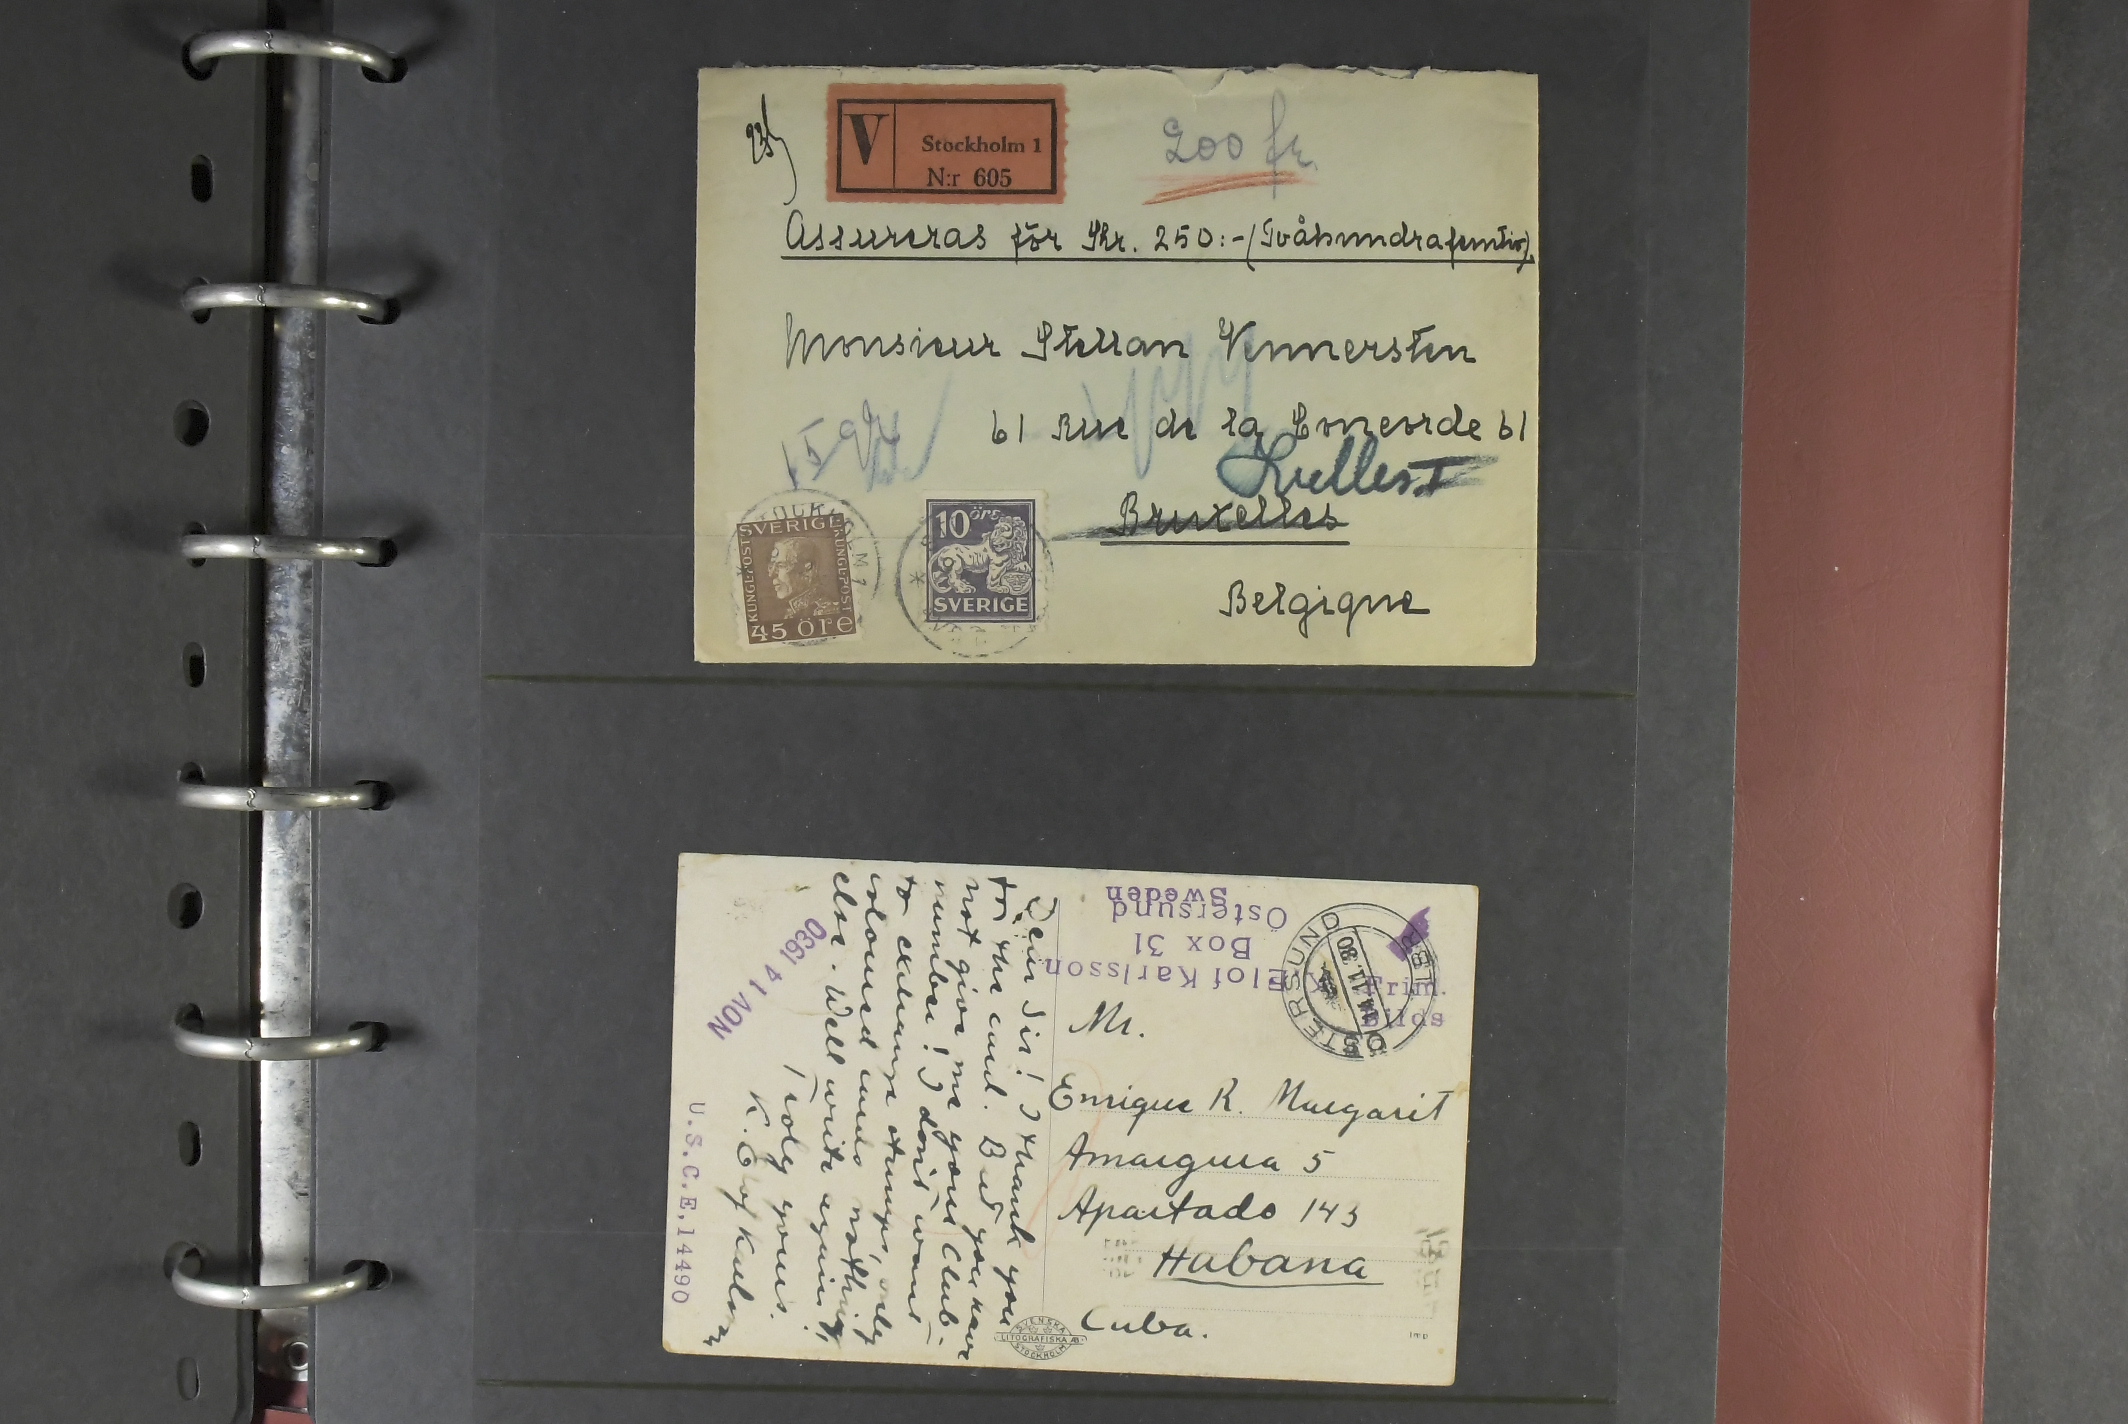 V
Stockholm 1
N:r 605
200 fr.
Assureras för Skr. 250:-(Tvåhundrafemtio).
Monsieur Stellan Vennersten
61 Rue de la Concorde 61
Ixelles
Bruxelles
Belgique
STOCKHOLM 1
SVERIGE
KUNGL. POST
KUNGL. POST
45 öre
10 öre
SVERIGE
Elof Karlsson
Box 31
Östersund
Sweden
ÖSTERSUND
11.30
LBR
Frim.
Bilds
Mr.
Enrique R. Margarit
Amargura 5
Apartado 143
Habana
Cuba.
Dear Sir! I thank you
for the card. But you have
not give me your Club-
number! I don't want
to exchange stamps, only
coloured cards nothing
else. Well write again!
Truly yours.
K. Elof Karlsson
NOV 14 1930
U.S.C.E.14490
SVENSKA
LITOGRAFISKA AB.
STOCKHOLM
Imp